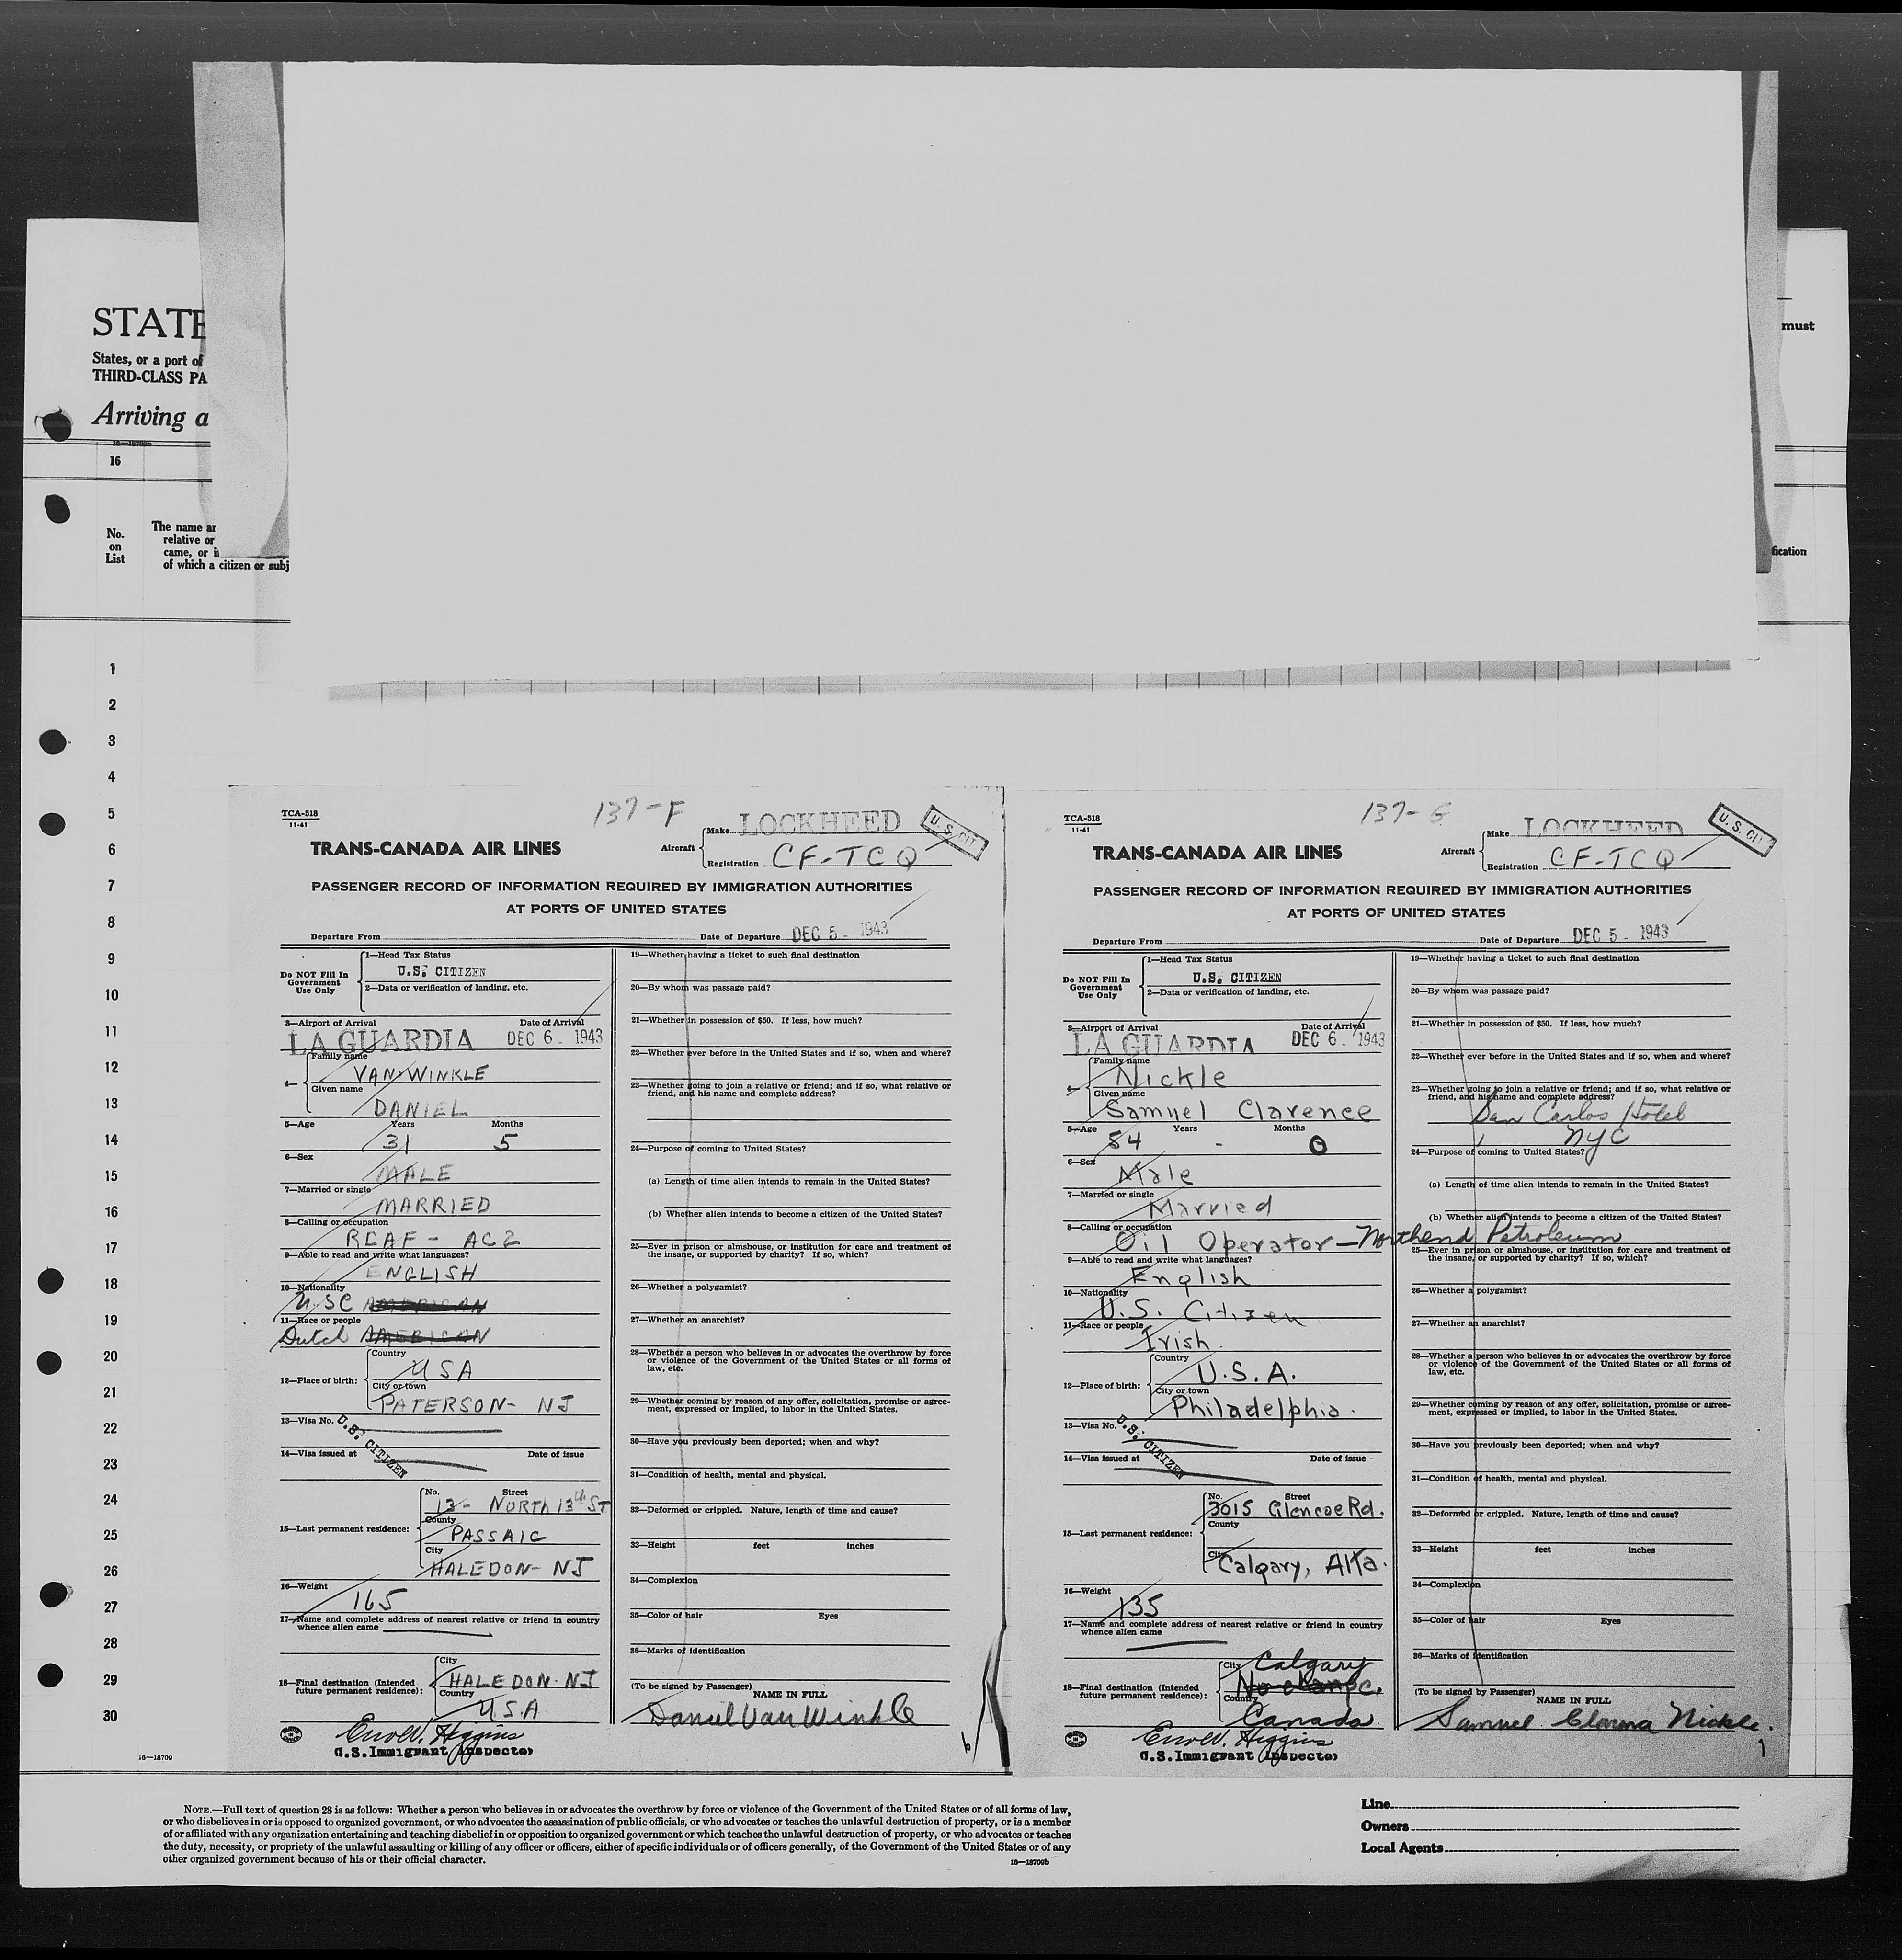 STATE
States, or a port of
THIRD-CLASS PA
Arriving a
16
No.
on
List
The name an
relative or
came, or i
of which a citizen or subj
must
fication
1
2
3
4
5
6
7
8
9
10
11
12
13
14
15
16
17
18
19
20
21
22
23
24
25
26
27
28
29
30
16—18709
TCA-518
11-41
137-F
TRANS-CANADA AIR LINES
Aircraft
Make LOCKHEED
Registration CF-TCQ
U.S. CIT
PASSENGER RECORD OF INFORMATION REQUIRED BY IMMIGRATION AUTHORITIES
AT PORTS OF UNITED STATES
Departure From
Date of Departure DEC 5 - 1943
Do NOT Fill In
Government
Use Only
1—Head Tax Status
U.S. CITIZEN
2—Data or verification of landing, etc.
3—Airport of Arrival
Date of Arrival
LA GUARDIA DEC 6 - 1943
4—
Family name
VAN WINKLE
Given name
DANIEL
5—Age Years Months
31 5
6—Sex
MALE
7—Married or single
MARRIED
8—Calling or occupation
RCAF - AC2
9—Able to read and write what languages?
ENGLISH
10—Nationality
USC AMERICAN
11—Race or people
Dutch AMERICAN
12—Place of birth:
Country
USA
City or town
PATERSON - NJ
13—Visa No.
U.S. CITIZEN
14—Visa issued at Date of issue
15—Last permanent residence:
No. Street
13 - NORTH 13th ST
County
PASSAIC
City
HALEDON - NJ
16—Weight
165
17—Name and complete address of nearest relative or friend in country
whence alien came
18—Final destination (Intended
future permanent residence):
City
HALEDON - NJ
Country
U.S.A
Errol V. Higgins
U.S. Immigrant Inspector
19—Whether having a ticket to such final destination
20—By whom was passage paid?
21—Whether in possession of $50. If less, how much?
22—Whether ever before in the United States and if so, when and where?
23—Whether going to join a relative or friend; and if so, what relative or
friend, and his name and complete address?
24—Purpose of coming to United States?
(a) Length of time alien intends to remain in the United States?
(b) Whether alien intends to become a citizen of the United States?
25—Ever in prison or almshouse, or institution for care and treatment of
the insane, or supported by charity? If so, which?
26—Whether a polygamist?
27—Whether an anarchist?
28—Whether a person who believes in or advocates the overthrow by force
or violence of the Government of the United States or all forms of
law, etc.
29—Whether coming by reason of any offer, solicitation, promise or agree-
ment, expressed or implied, to labor in the United States.
30—Have you previously been deported; when and why?
31—Condition of health, mental and physical.
32—Deformed or crippled. Nature, length of time and cause?
33—Height feet inches
34—Complexion
35—Color of hair Eyes
36—Marks of identification
(To be signed by Passenger)
NAME IN FULL
Daniel Van Winkle
TCA-518
11-41
137-G
TRANS-CANADA AIR LINES
Aircraft
Make LOCKHEED
Registration CF-TCQ
U.S. CIT
PASSENGER RECORD OF INFORMATION REQUIRED BY IMMIGRATION AUTHORITIES
AT PORTS OF UNITED STATES
Departure From
Date of Departure DEC 5 - 1943
Do NOT Fill In
Government
Use Only
1—Head Tax Status
U.S. CITIZEN
2—Data or verification of landing, etc.
3—Airport of Arrival
Date of Arrival
LA GUARDIA DEC 6 - 1943
4—
Family name
Nickle
Given name
Samuel Clarence
5—Age Years Months
54 - 0
6—Sex
Male
7—Married or single
Married
8—Calling or occupation
Oil Operator — Northend Petroleum
9—Able to read and write what languages?
English
10—Nationality
U.S. Citizen
11—Race or people
Irish.
12—Place of birth:
Country
U.S.A.
City or town
Philadelphia.
13—Visa No.
U.S. CITIZEN
14—Visa issued at Date of issue
15—Last permanent residence:
No. Street
3015 Glencoe Rd.
County
City
Calgary, Alta.
16—Weight
135
17—Name and complete address of nearest relative or friend in country
whence alien came
18—Final destination (Intended
future permanent residence):
City
Calgary
No change.
Country
Canada
Errol V. Higgins
U.S. Immigrant Inspector
19—Whether having a ticket to such final destination
20—By whom was passage paid?
21—Whether in possession of $50. If less, how much?
22—Whether ever before in the United States and if so, when and where?
23—Whether going to join a relative or friend; and if so, what relative or
friend, and his name and complete address?
San Carlos Hotel
NYC
24—Purpose of coming to United States?
(a) Length of time alien intends to remain in the United States?
(b) Whether alien intends to become a citizen of the United States?
25—Ever in prison or almshouse, or institution for care and treatment of
the insane, or supported by charity? If so, which?
26—Whether a polygamist?
27—Whether an anarchist?
28—Whether a person who believes in or advocates the overthrow by force
or violence of the Government of the United States or all forms of
law, etc.
29—Whether coming by reason of any offer, solicitation, promise or agree-
ment, expressed or implied, to labor in the United States.
30—Have you previously been deported; when and why?
31—Condition of health, mental and physical.
32—Deformed or crippled. Nature, length of time and cause?
33—Height feet inches
34—Complexion
35—Color of hair Eyes
36—Marks of identification
(To be signed by Passenger)
NAME IN FULL
Samuel Clarence Nickle.
NOTE.—Full text of question 28 is as follows: Whether a person who believes in or advocates the overthrow by force or violence of the Government of the United States or of all forms of law,
or who disbelieves in or is opposed to organized government, or who advocates the assassination of public officials, or who advocates or teaches the unlawful destruction of property, or is a member
of or affiliated with any organization entertaining and teaching disbelief in or opposition to organized government or which teaches the unlawful destruction of property, or who advocates or teaches
the duty, necessity, or propriety of the unlawful assaulting or killing of any officer or officers, either of specific individuals or of officers generally, of the Government of the United States or of any
other organized government because of his or their official character.
16—18709b
Line
Owners
Local Agents